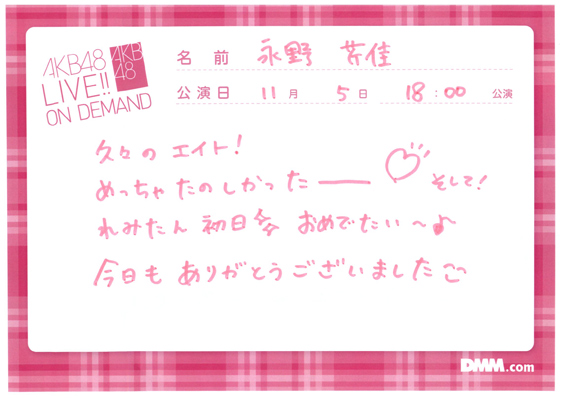 AKB48
LIVE!!
ON DEMAND
AKB
48
名前 永野 芹佳
公演日 11月 5日 18:00 公演
久々の エイト!
めっちゃ たのしかったー♡ そして!
れみたん 初日 おめでたい〜♪
今日も ありがとうございました
DMM.com